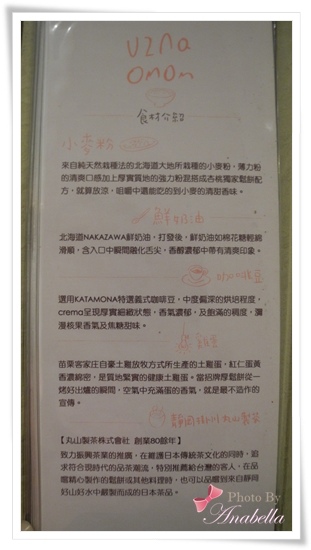 uzna
omom
食材介紹
小麥粉
來自純天然栽種法的北海道大地所栽種的小麥粉、薄力粉
的清爽口感加上厚實質地的強力粉混搭成杏桃獨家鬆餅配
方，就算放涼，咀嚼中還能吃的到小麥的清甜香味。
鮮奶油
北海道NAKAZAWA鮮奶油，打發後，鮮奶油如棉花糖輕綿
滑順，含入口中瞬間融化舌尖，香醇濃郁中帶有清爽印象。
咖啡豆
選用KATAMONA特選義式咖啡豆，中度偏深的烘焙程度，
crema呈現厚實細緻狀態，香氣濃郁，及飽滿的稠度，瀰
漫核果香氣及焦糖甜味。
雞蛋
苗栗客家庄自豪土雞放牧方式所生產的土雞蛋，紅仁蛋黃
香濃綿密，是質地緊實的健康土雞蛋。當招牌厚鬆餅從一
烤好出爐的瞬間，空氣中充滿蛋的香氣，就是最不造作的
宣傳。
靜岡掛川丸山製茶
【丸山製茶株式會社 創業80餘年】
致力振興茶業的推廣，在維護日本傳統茶文化的同時，追
求符合現時代的品茶潮流，特別推薦給台灣的客人，在品
嚐精心製作的鬆餅或其他料理時，也可以品嚐到來自靜岡
好山好水中嚴製而成的日本茶品。
Photo By
Anabella